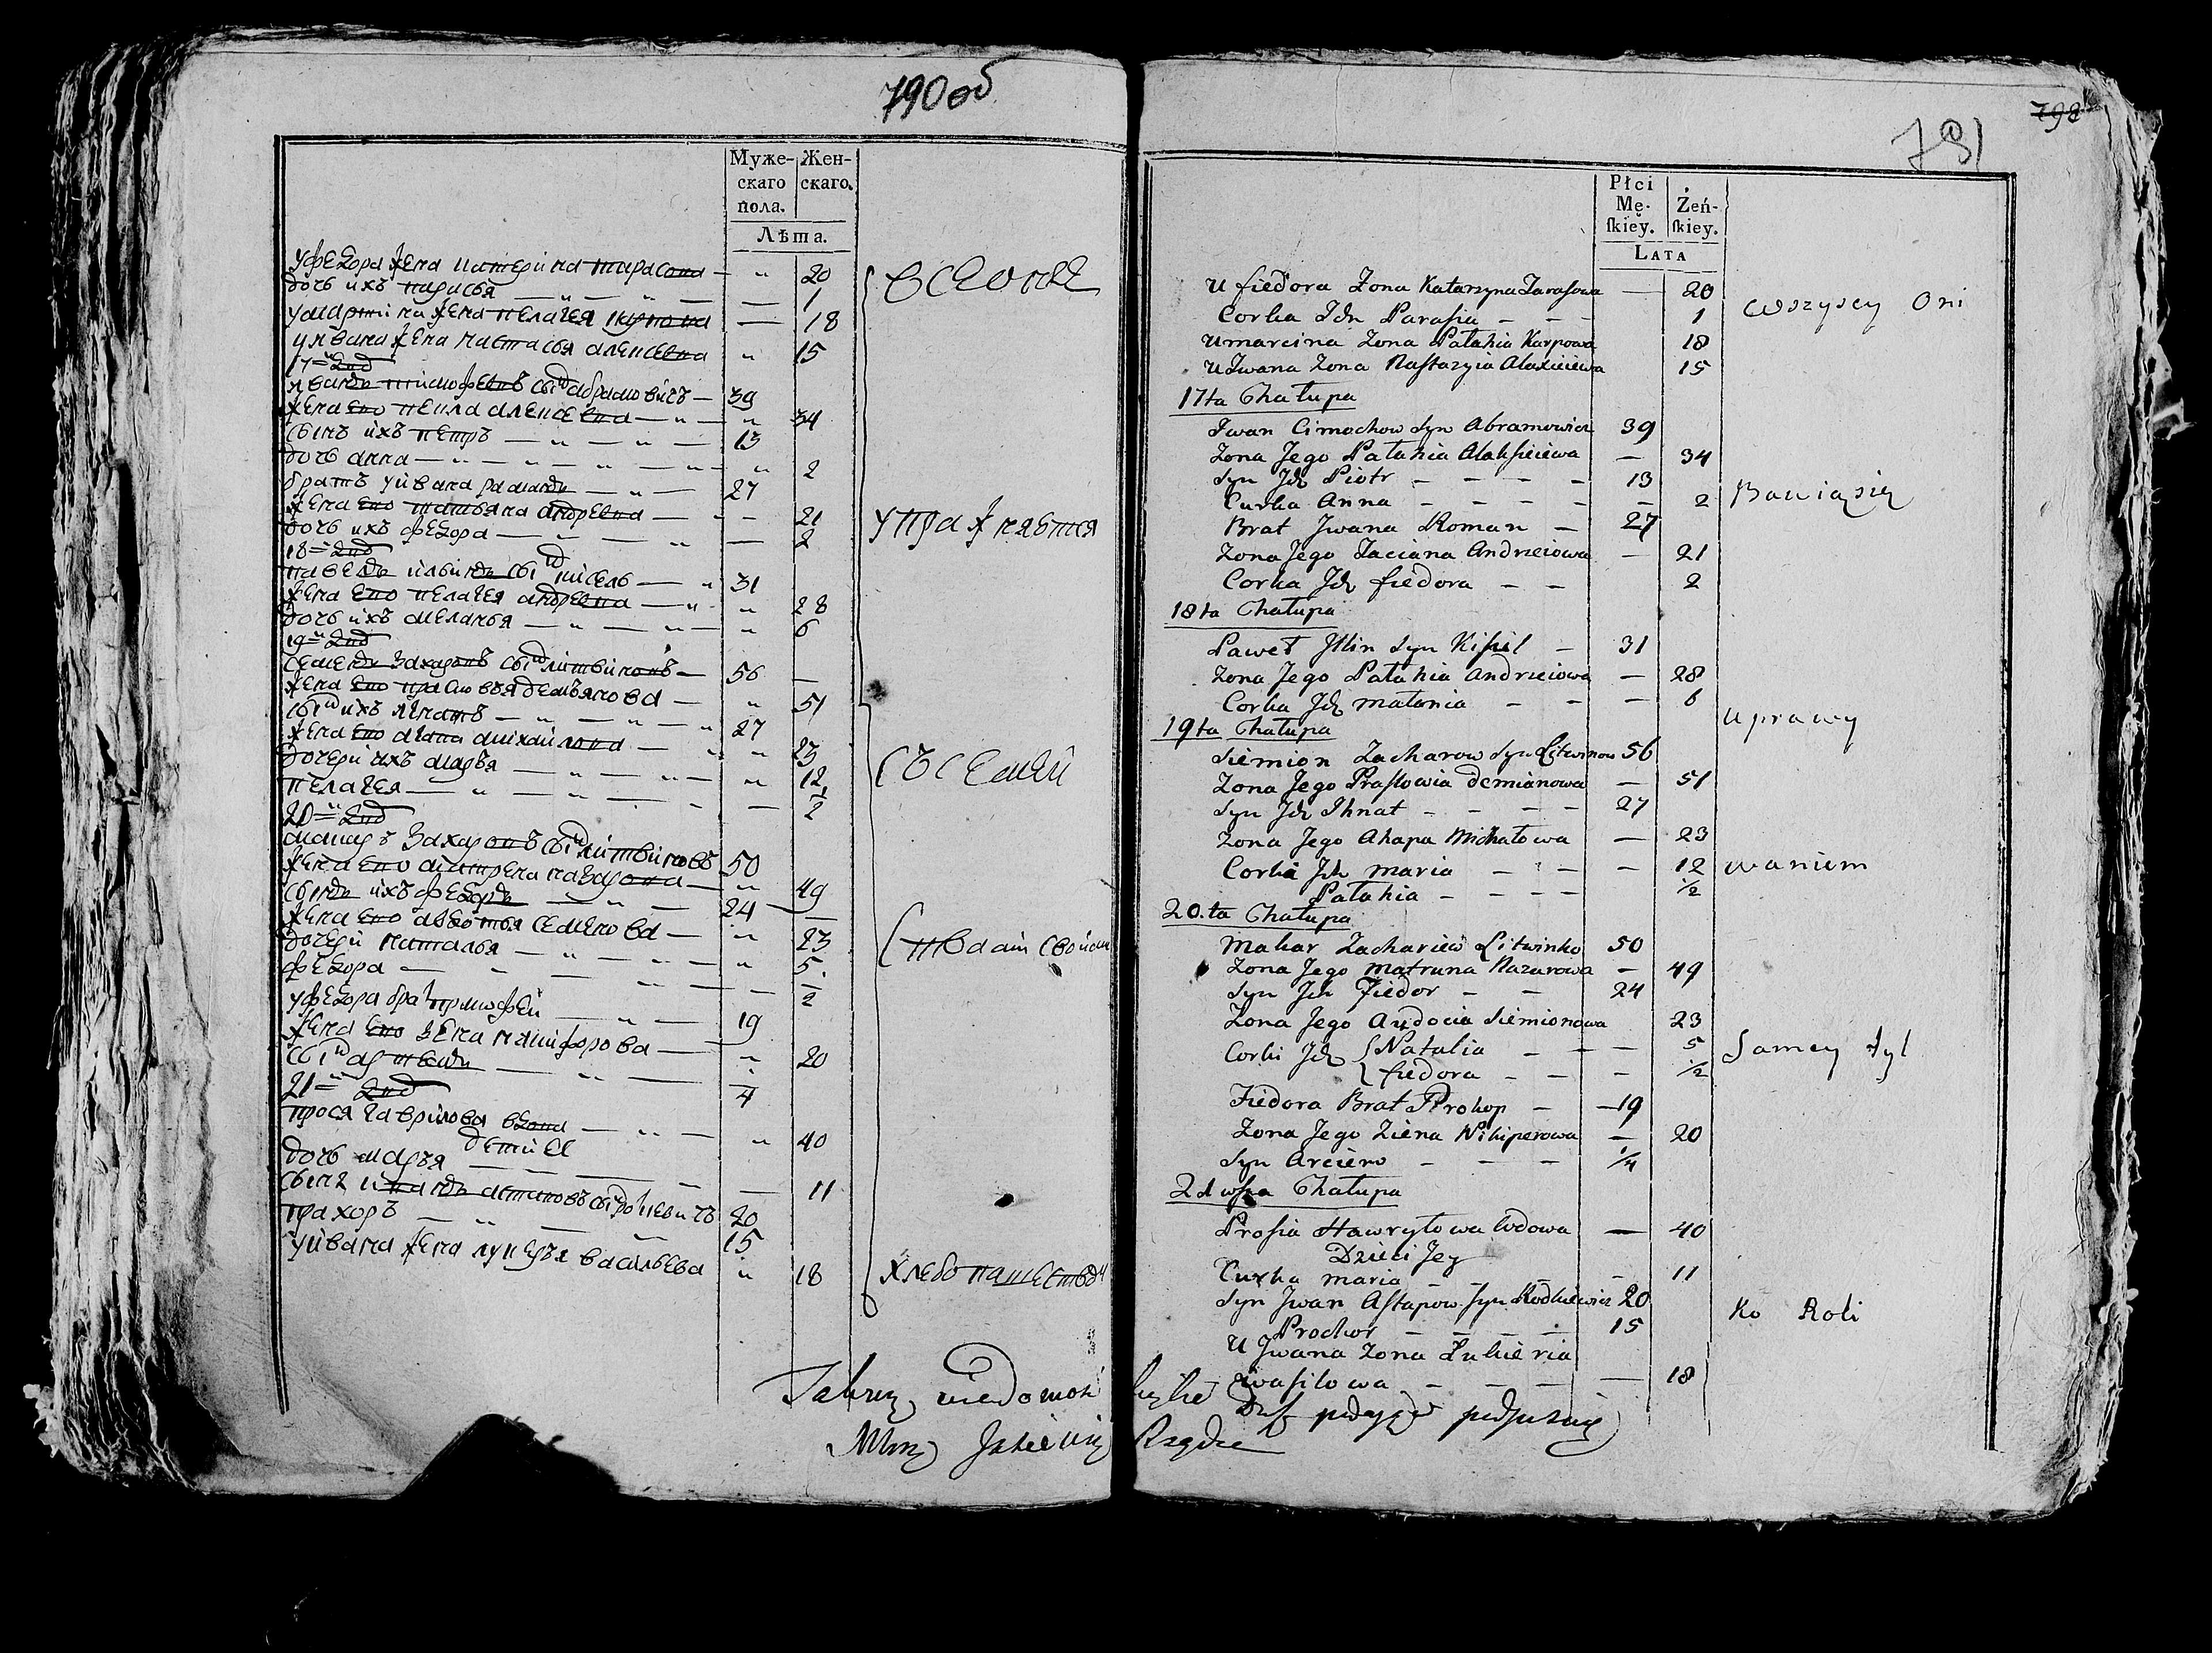 790 об
Муже-
скаго
пола.
Жен-
скаго.
Лѣта.
уфедора жена катерина тарасова — " 20
дочь ихъ парасья — " — " — 1
умартина жена пелагея карпова — 18
уивана жена настасья алексевна " 15
17=дво
иванъ тимофеевъ сынъ абрамовичъ — 39
жена ево пекла алексевна — " — " 34
сынъ ихъ петръ — " — " — 13
дочь анна — " — " — " — " 2
братъ уивана романъ — " — 27
жена ево татьяна андревна — " — 21
дочь ихъ федора — " — " — 2
18=дво
павелъ ильинъ сынъ кисель — " 31
жена ево пелагея андревна — " " 28
дочь ихъ меланья — " — " — " 6
19=дво
семенъ захаровъ сынъ литвиновъ — 56 —
жена ево прасковья демьянова — " 51
сынъ ихъ игнатъ — " — " — " 27
жена ево агапа михайлова — " " 23
дочери ихъ марья — " — " — " 12
пелагея — " — " — 1/2
20=дво
макаръ захаровъ сынъ литвиновъ 50
жена ево матрена назарова — " 49
сынъ ихъ федоръ — " — 24 —
жена ево авдотья семенова — " 23
дочери наталья — " — " — " 5
федора — " — " — 1/2
уфедора братъ прокофей — " — 19
жена ево зена никифорова — " 20
сынъ артемъ — " — 1/4
21=дво
прося гаврилова вдова — " — " 40
дети ее
дочь марья — — — 11
сынъ иванъ астаповъ сынъ родкевичъ 20
прахоръ — " — " 15
уивана жена лукерья васильева " 18
все онѣ
упражняются
съ семей
ствами своими
хлебопашествомъ
791
798
Płci
Mę-
ſkiey.
Żeń-
ſkiey.
LATA
U fiedora Zona Katarzyna Tarasowa — 20
Corka Ich Parasia — — — 1
U marcina Zona Pałahia Karpowa 18
U Iwana Zona Nastazyia Alaxieiewa 15
17ta Chałupa
Iwan Cimochow Syn Abramowicz 39
Zona Jego Pałahia Alaksieiewa — 34
Syn Ich Piotr — — — — 13
Curka Anna — — — — — 2
Brat Jwana Roman — 27
Zona Jego Taciana Andrzeiowa — 21
Corka Ich fiedora — — 2
18ta Chałupa
Paweł Illin Syn Kisiel — 31
Zona Jego Pałahia Andrzeiowa — 28
Corka Ich małania — — — 6
19ta Chałupa
Siemion Zacharow Syn Litwinow 56
Zona Jego Praskowia demianowa — 51
Syn Ich Ihnat — — — — 27
Zona Jego Ahapa Michałowa — 23
Corki Ich maria — — — 12
Pałahia — — — — 1/2
20.ta Chałupa
Makar Zachariew Litwinko 50
Zona Jego matruna Nazarowa — 49
Syn Ich Fiedor — — 24
Zona Jego Audocia Siemionowa 23
Corki Ich { Natalia — — — 5
{ fiedora — — — 1/2
Fiedora Brat Prokop — — 19
Zona Jego Ziena Nikiperowa — 20
Syn Arciem — — — 1/4
21wsza Chałupa
Prosia Hawryłowa wdowa — 40
Dzieci Jey
Curka maria — — — — 11
Syn Jwan Astapow syn Rodkiewicz 20
Prochor — — — — 15
U Jwana Zona Łukieria
wasilowa — — — — 18
Wszyscy Oni
Bawią się
uprawy
waniem
Samey tyl
ko Roli